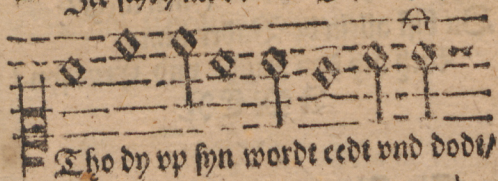 Tho dy vp syn wordt eedt vnd dodt/